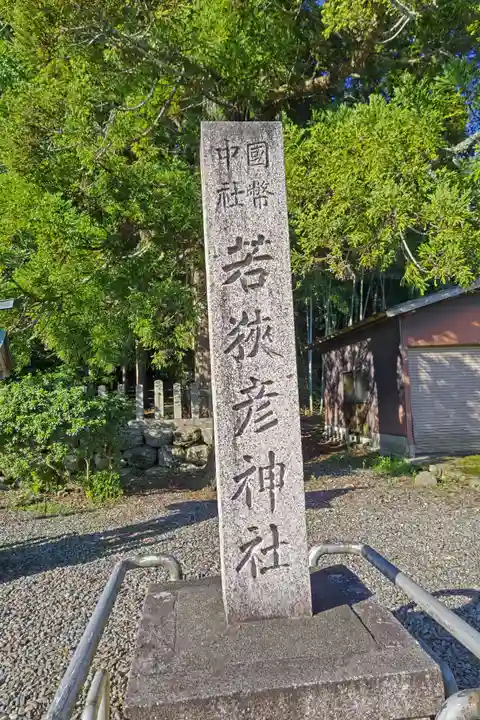 國幣
中社
若狹彦神社